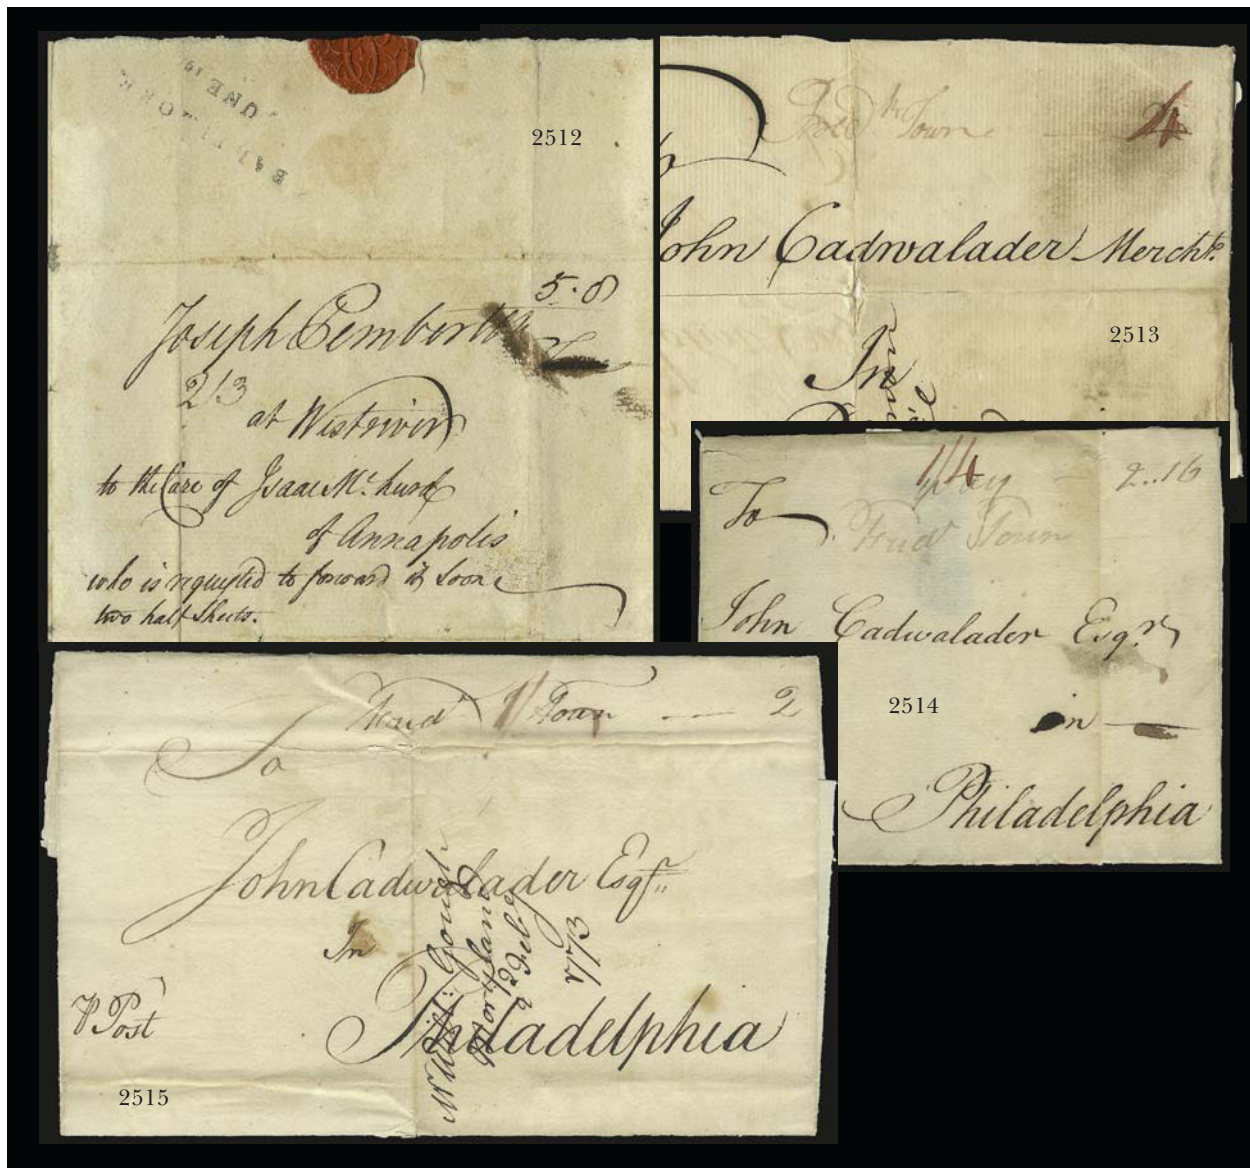 JUNE
2512
5.8
Joseph Pemberton
2/3
at Westriver
to the Care of Isaac Mc. hard
of Annapolis
who is requested to forward it soon
two half Sheets.
Fred Town 4
John Cadwalader Mercht.
2513
In
1/4
2..16
To
Fred Town
John Cadwalader Esqr.
2514
in
Philadelphia
Fred Town 2
To
John Cadwalader Esqr.
In
Philadelphia
P Post
Maryland
Feby
1773
2515